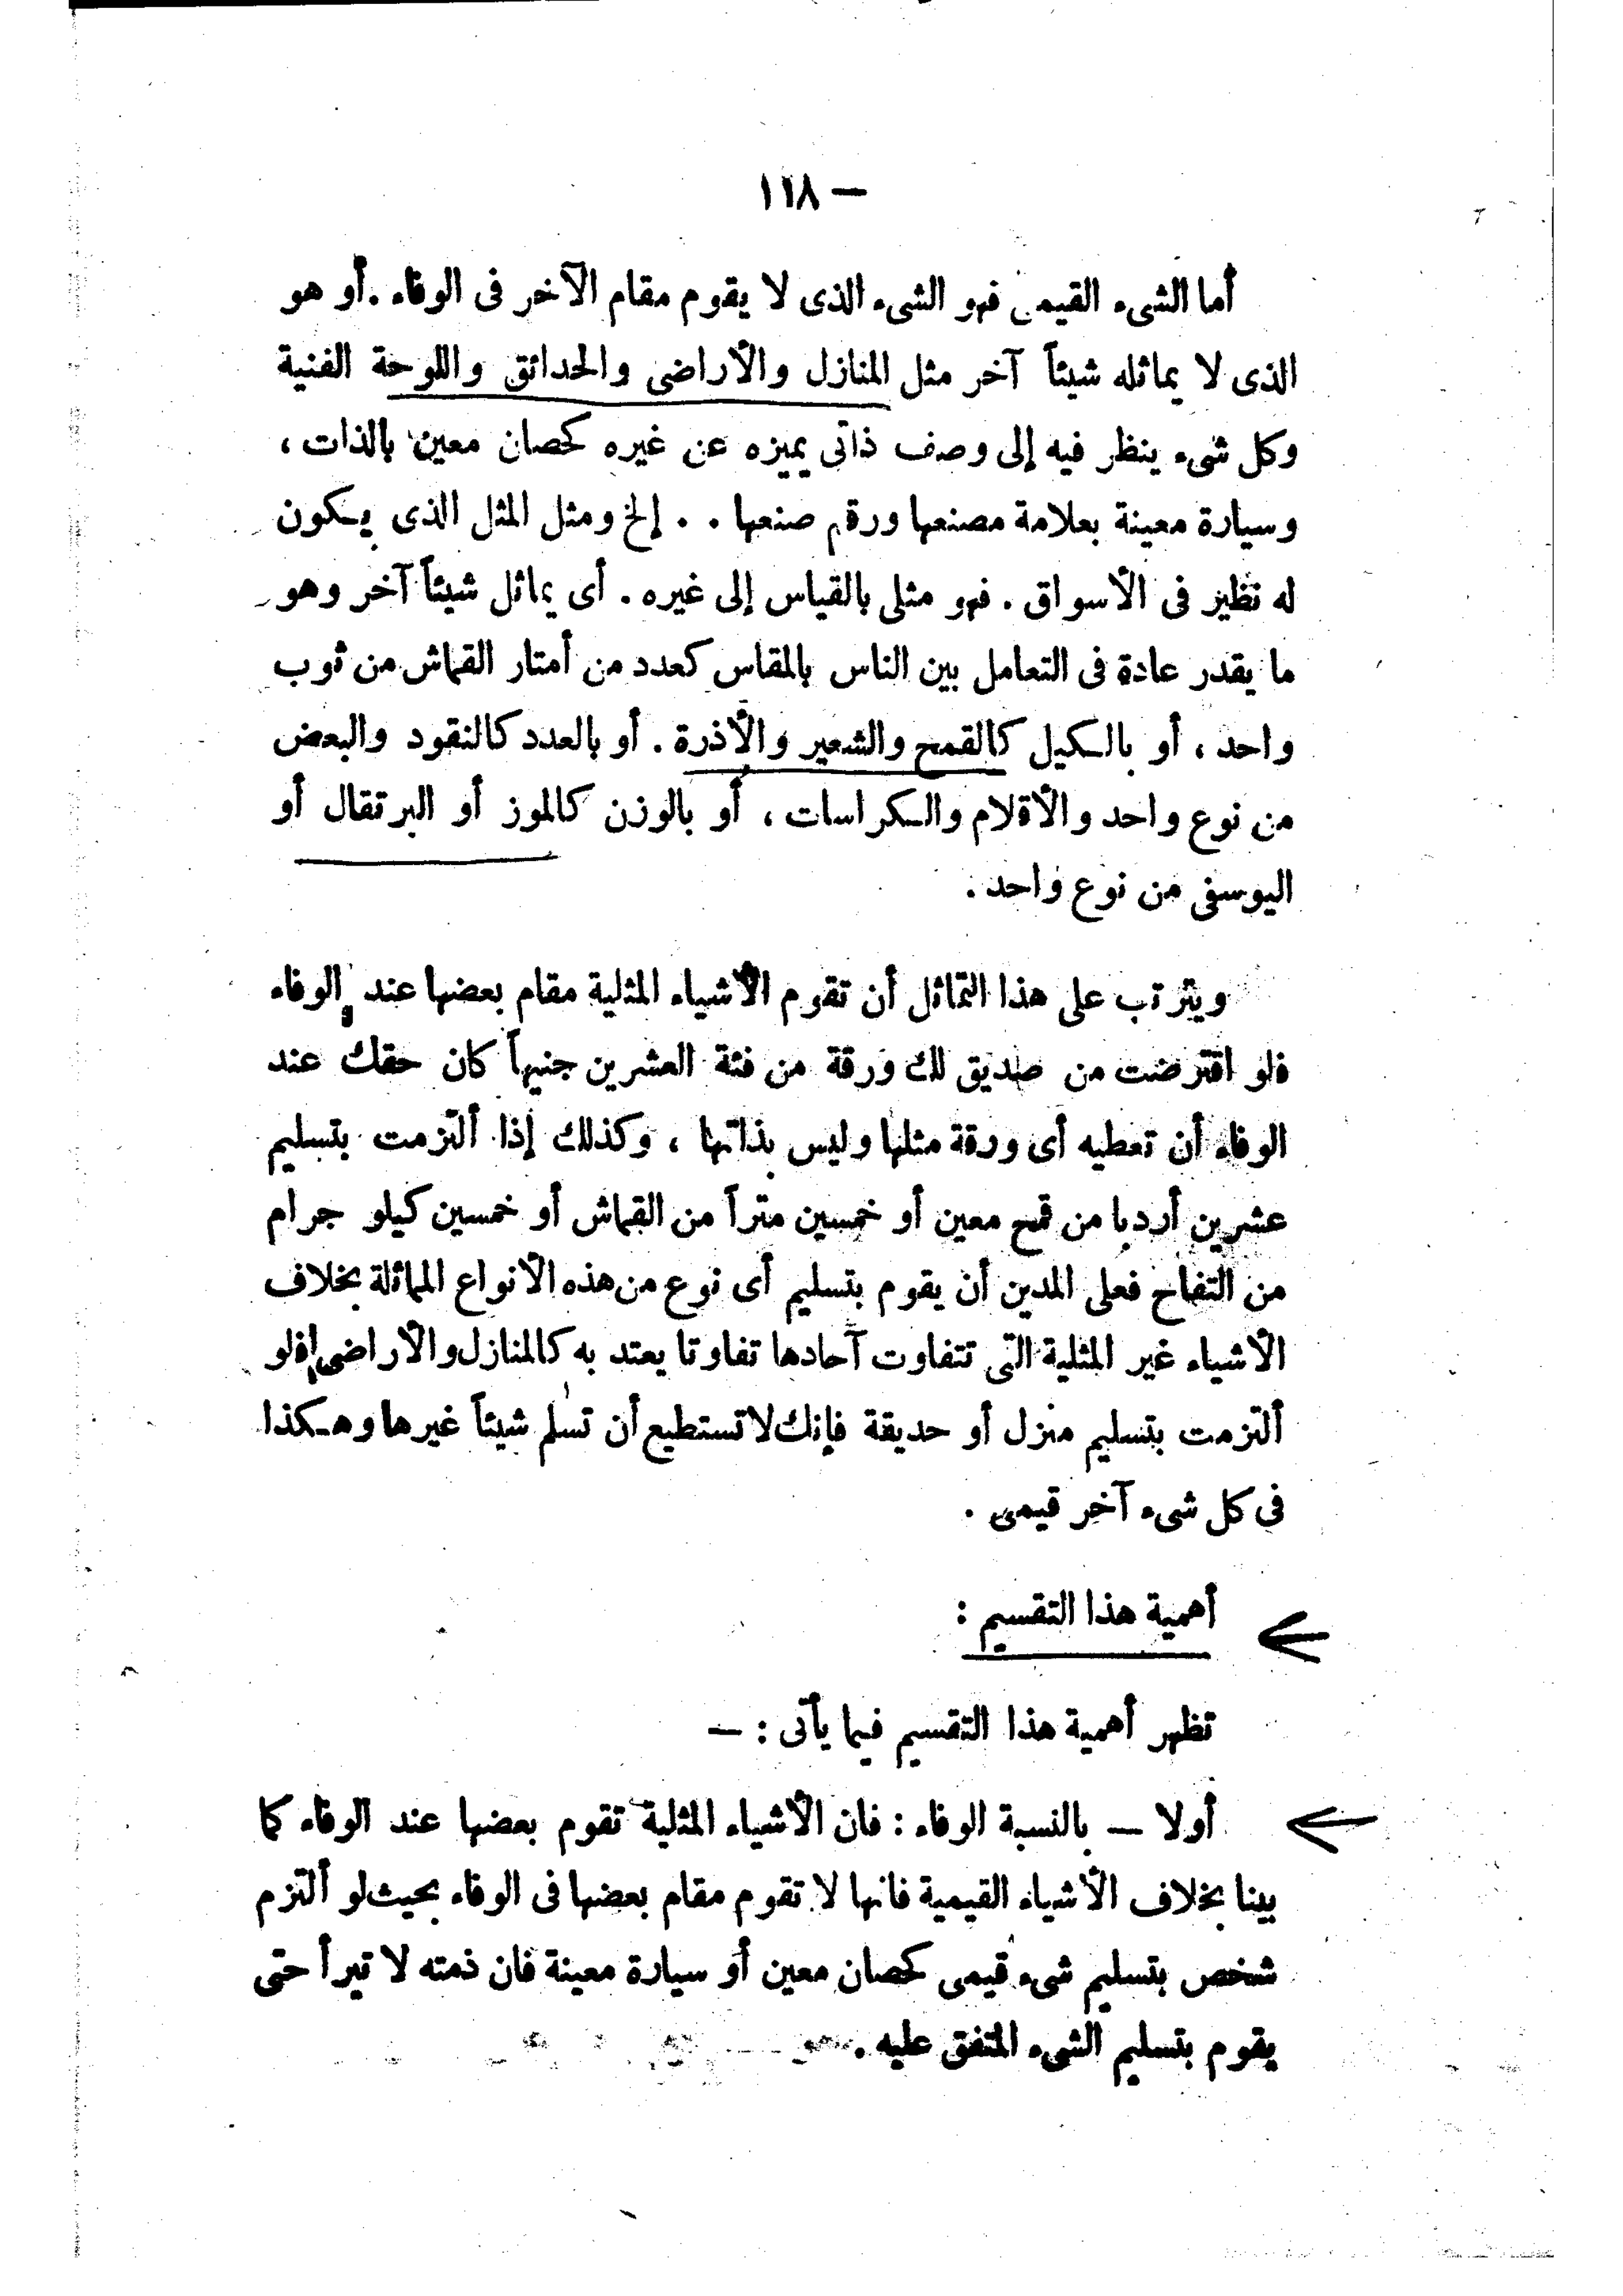 — ١١٨
أما الشىء القيمى فهو الشىء الذى لا يقوم مقام الآخر فى الوفاء . أو هو
الذى لا يماثله شيئاً آخر مثل المنازل والأراضى والحدائق واللوحة الفنية
وكل شىء ينظر فيه إلى وصف ذاتى يميزه عن غيره كحصان معين بالذات ،
وسيارة معينة بعلامة مصنعها ورقم صنعها . . إلخ ومثل المثل الذى يكون
له نظير فى الأسواق . فهو مثلى بالقياس إلى غيره . أى يماثل شيئاً آخر وهو
ما يقدر عادة فى التعامل بين الناس بالمقاس كعدد من أمتار القماش من ثوب
واحد ، أو بالكيل كالقمح والشعير والأذرة . أو بالعدد كالنقود والبعض
من نوع واحد والأقلام والكراسات ، أو بالوزن كالموز أو البرتقال أو
اليوسفى من نوع واحد .
ويترتب على هذا التماثل أن تقوم الأشياء المثلية مقام بعضها عند الوفاء
فلو اقترضت من صديق لك ورقة من فئة العشرين جنيهاً كان حقك عند
الوفاء أن تعطيه أى ورقة مثلها وليس بذاتها ، وكذلك إذا ألتزمت بتسليم
عشرين أردبا من قمح معين أو خمسين متراً من القماش أو خمسين كيلو جرام
من التفاح فعلى المدين أن يقوم بتسليم أى نوع من هذه الأنواع المماثلة بخلاف
الأشياء غير المثلية التى تتفاوت آحادها تفاوتا يعتد به كالمنازل والأراضى فلو
ألتزمت بتسليم منزل أو حديقة فإنك لا تستطيع أن تسلم شيئاً غيرها وهكذا
فى كل شىء آخر قيمى .
أهمية هذا التقسيم :
تظهر أهمية هذا التقسيم فيما يأتى : —
أولا — بالنسبة الوفاء : فان الأشياء المثلية تقوم بعضها عند الوفاء كما
بينا بخلاف الأشياء القيمية فانها لا تقوم مقام بعضها فى الوفاء بحيث لو ألتزم
شخص بتسليم شىء قيمى كحصان معين أو سيارة معينة فان ذمته لا تبرأ حتى
يقوم بتسليم الشىء المتفق عليه .